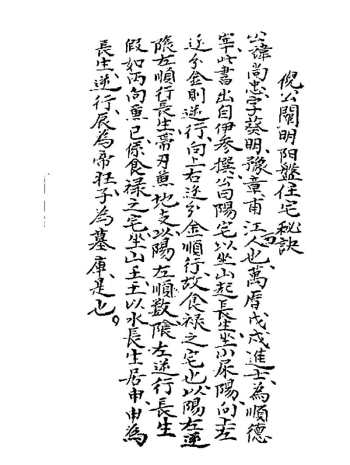 倪公闡明陽盤住宅秘訣
公諱尚忠字葵明豫章甫江人也萬曆戊戌進士為順德
宰此書出自伊參撰公曰陽宅以坐山起長生坐小尿陽向上左
逆分金則逆行向上右逆分金順行故食祿之宅也以陽左逆
陰左順行長生帶刃魚地支以陽左順數陰左逆行長生
假如丙向魚已係食祿之宅坐山壬壬以水長生居申申為
長生逆行辰為帝旺子為墓庫是也。